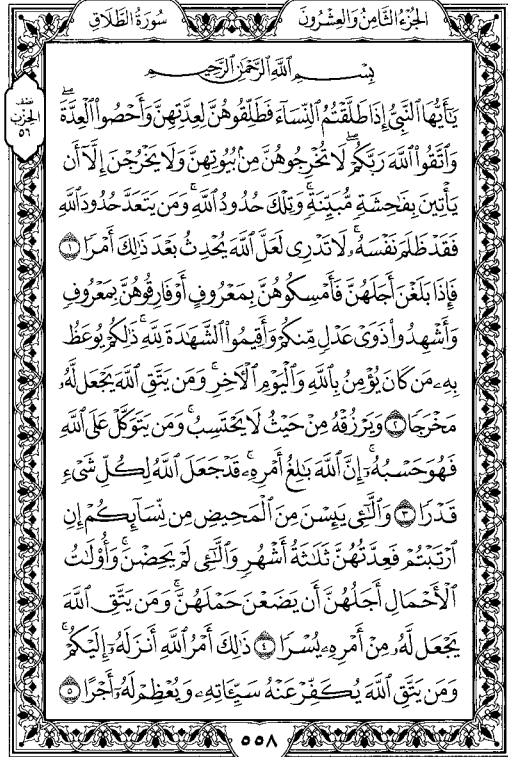 الجُزْءُ الثَّامِنُ وَالعِشْرُونَ
سُورَةُ الطَّلَاقِ
نصف
الحزب
٥٦
بِسْمِ اللَّهِ الرَّحْمَٰنِ الرَّحِيمِ
يَٰٓأَيُّهَا ٱلنَّبِىُّ إِذَا طَلَّقْتُمُ ٱلنِّسَآءَ فَطَلِّقُوهُنَّ لِعِدَّتِهِنَّ وَأَحْصُوا۟ ٱلْعِدَّةَ ۖ
وَٱتَّقُوا۟ ٱللَّهَ رَبَّكُمْ ۖ لَا تُخْرِجُوهُنَّ مِنۢ بُيُوتِهِنَّ وَلَا يَخْرُجْنَ إِلَّآ أَن
يَأْتِينَ بِفَٰحِشَةٍ مُّبَيِّنَةٍ ۚ وَتِلْكَ حُدُودُ ٱللَّهِ ۚ وَمَن يَتَعَدَّ حُدُودَ ٱللَّهِ
فَقَدْ ظَلَمَ نَفْسَهُۥ ۚ لَا تَدْرِى لَعَلَّ ٱللَّهَ يُحْدِثُ بَعْدَ ذَٰلِكَ أَمْرًا ١
فَإِذَا بَلَغْنَ أَجَلَهُنَّ فَأَمْسِكُوهُنَّ بِمَعْرُوفٍ أَوْ فَارِقُوهُنَّ بِمَعْرُوفٍ
وَأَشْهِدُوا۟ ذَوَىْ عَدْلٍ مِّنكُمْ وَأَقِيمُوا۟ ٱلشَّهَٰدَةَ لِلَّهِ ۚ ذَٰلِكُمْ يُوعَظُ
بِهِۦ مَن كَانَ يُؤْمِنُ بِٱللَّهِ وَٱلْيَوْمِ ٱلْءَاخِرِ ۚ وَمَن يَتَّقِ ٱللَّهَ يَجْعَل لَّهُۥ
مَخْرَجًا ٢ وَيَرْزُقْهُ مِنْ حَيْثُ لَا يَحْتَسِبُ ۚ وَمَن يَتَوَكَّلْ عَلَى ٱللَّهِ
فَهُوَ حَسْبُهُۥٓ ۚ إِنَّ ٱللَّهَ بَٰلِغُ أَمْرِهِۦ ۚ قَدْ جَعَلَ ٱللَّهُ لِكُلِّ شَىْءٍ
قَدْرًا ٣ وَٱلَّٰٓـِٔى يَئِسْنَ مِنَ ٱلْمَحِيضِ مِن نِّسَآئِكُمْ إِنِ
ٱرْتَبْتُمْ فَعِدَّتُهُنَّ ثَلَٰثَةُ أَشْهُرٍ وَٱلَّٰٓـِٔى لَمْ يَحِضْنَ ۚ وَأُو۟لَٰتُ
ٱلْأَحْمَالِ أَجَلُهُنَّ أَن يَضَعْنَ حَمْلَهُنَّ ۚ وَمَن يَتَّقِ ٱللَّهَ
يَجْعَل لَّهُۥ مِنْ أَمْرِهِۦ يُسْرًا ٤ ذَٰلِكَ أَمْرُ ٱللَّهِ أَنزَلَهُۥٓ إِلَيْكُمْ ۚ
وَمَن يَتَّقِ ٱللَّهَ يُكَفِّرْ عَنْهُ سَيِّـَٔاتِهِۦ وَيُعْظِمْ لَهُۥٓ أَجْرًا ٥
٥٥٨